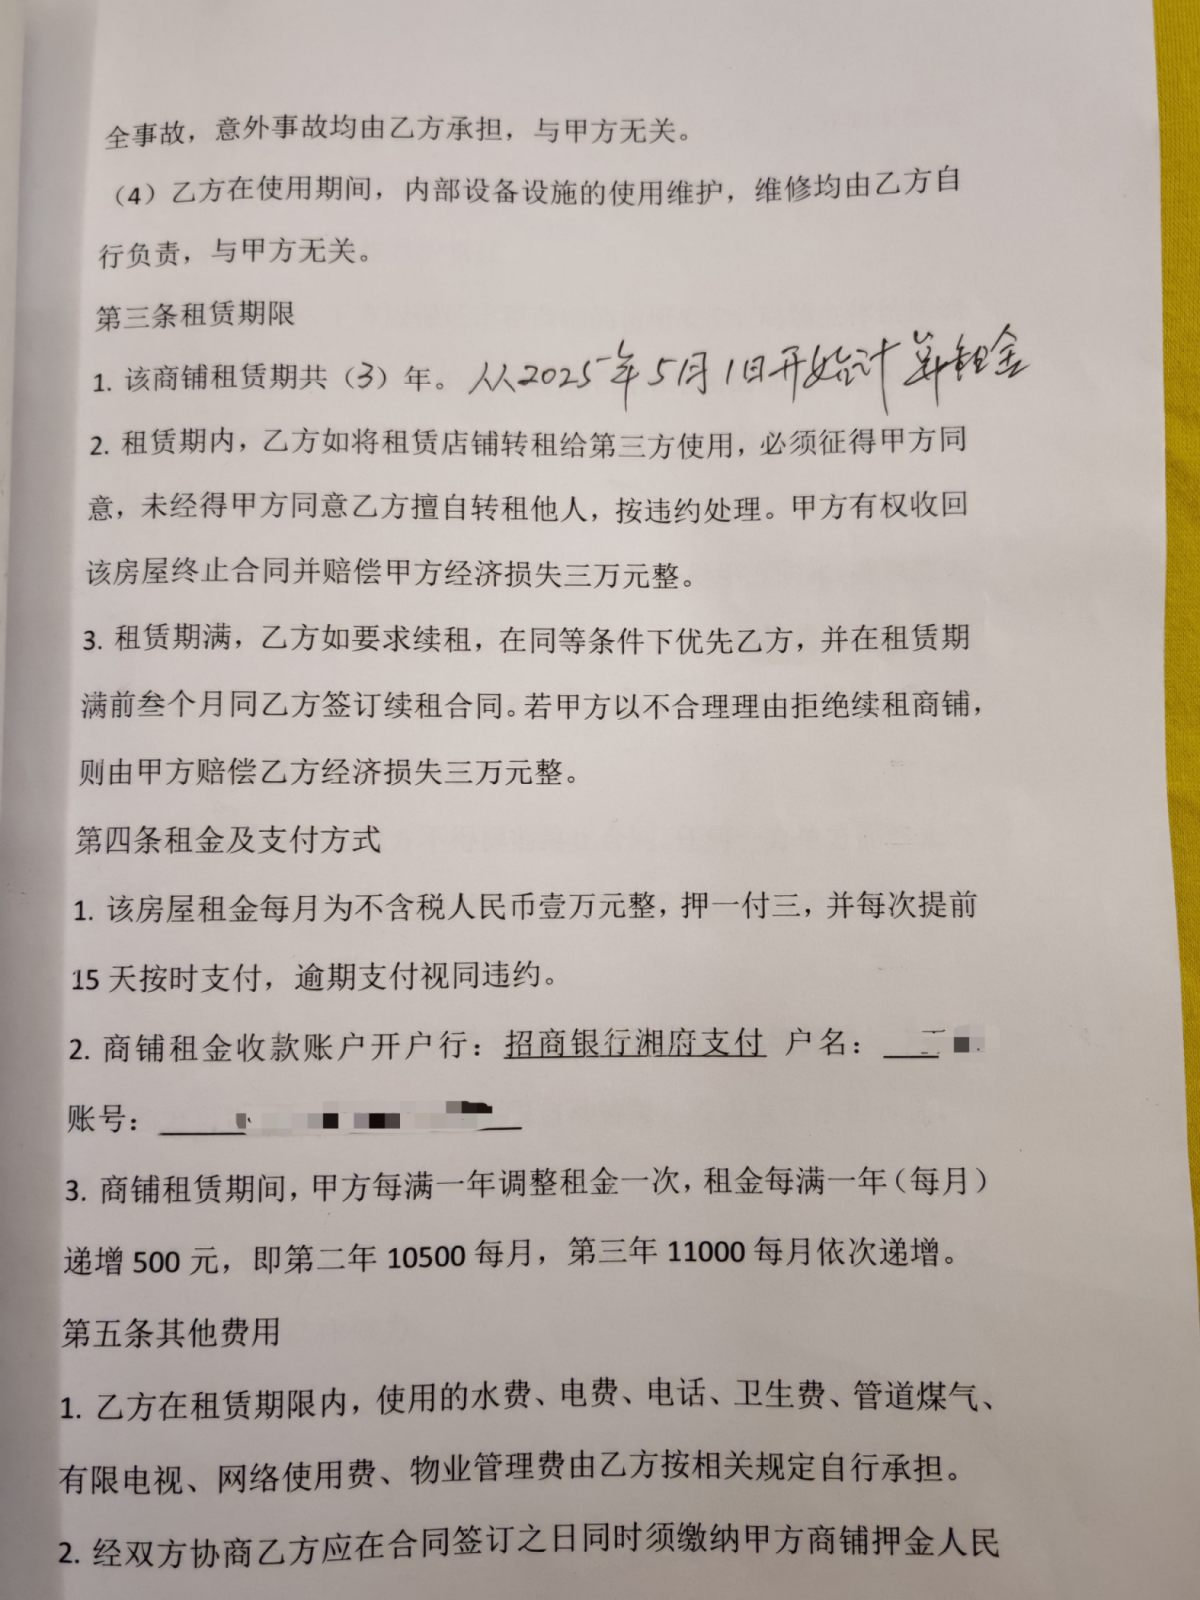 全事故，意外事故均由乙方承担，与甲方无关。
（4）乙方在使用期间，内部设备设施的使用维护，维修均由乙方自
行负责，与甲方无关。
第三条租赁期限
1. 该商铺租赁期共（3）年。从2025年5月1日开始计算租金
2. 租赁期内，乙方如将租赁店铺转租给第三方使用，必须征得甲方同
意，未经得甲方同意乙方擅自转租他人，按违约处理。甲方有权收回
该房屋终止合同并赔偿甲方经济损失三万元整。
3. 租赁期满，乙方如要求续租，在同等条件下优先乙方，并在租赁期
满前叁个月同乙方签订续租合同。若甲方以不合理理由拒绝续租商铺，
则由甲方赔偿乙方经济损失三万元整。
第四条租金及支付方式
1. 该房屋租金每月为不含税人民币壹万元整，押一付三，并每次提前
15 天按时支付，逾期支付视同违约。
2. 商铺租金收款账户开户行：招商银行湘府支付 户名：
账号：
3. 商铺租赁期间，甲方每满一年调整租金一次，租金每满一年（每月）
递增 500 元，即第二年 10500 每月，第三年 11000 每月依次递增。
第五条其他费用
1. 乙方在租赁期限内，使用的水费、电费、电话、卫生费、管道煤气、
有限电视、网络使用费、物业管理费由乙方按相关规定自行承担。
2. 经双方协商乙方应在合同签订之日同时须缴纳甲方商铺押金人民